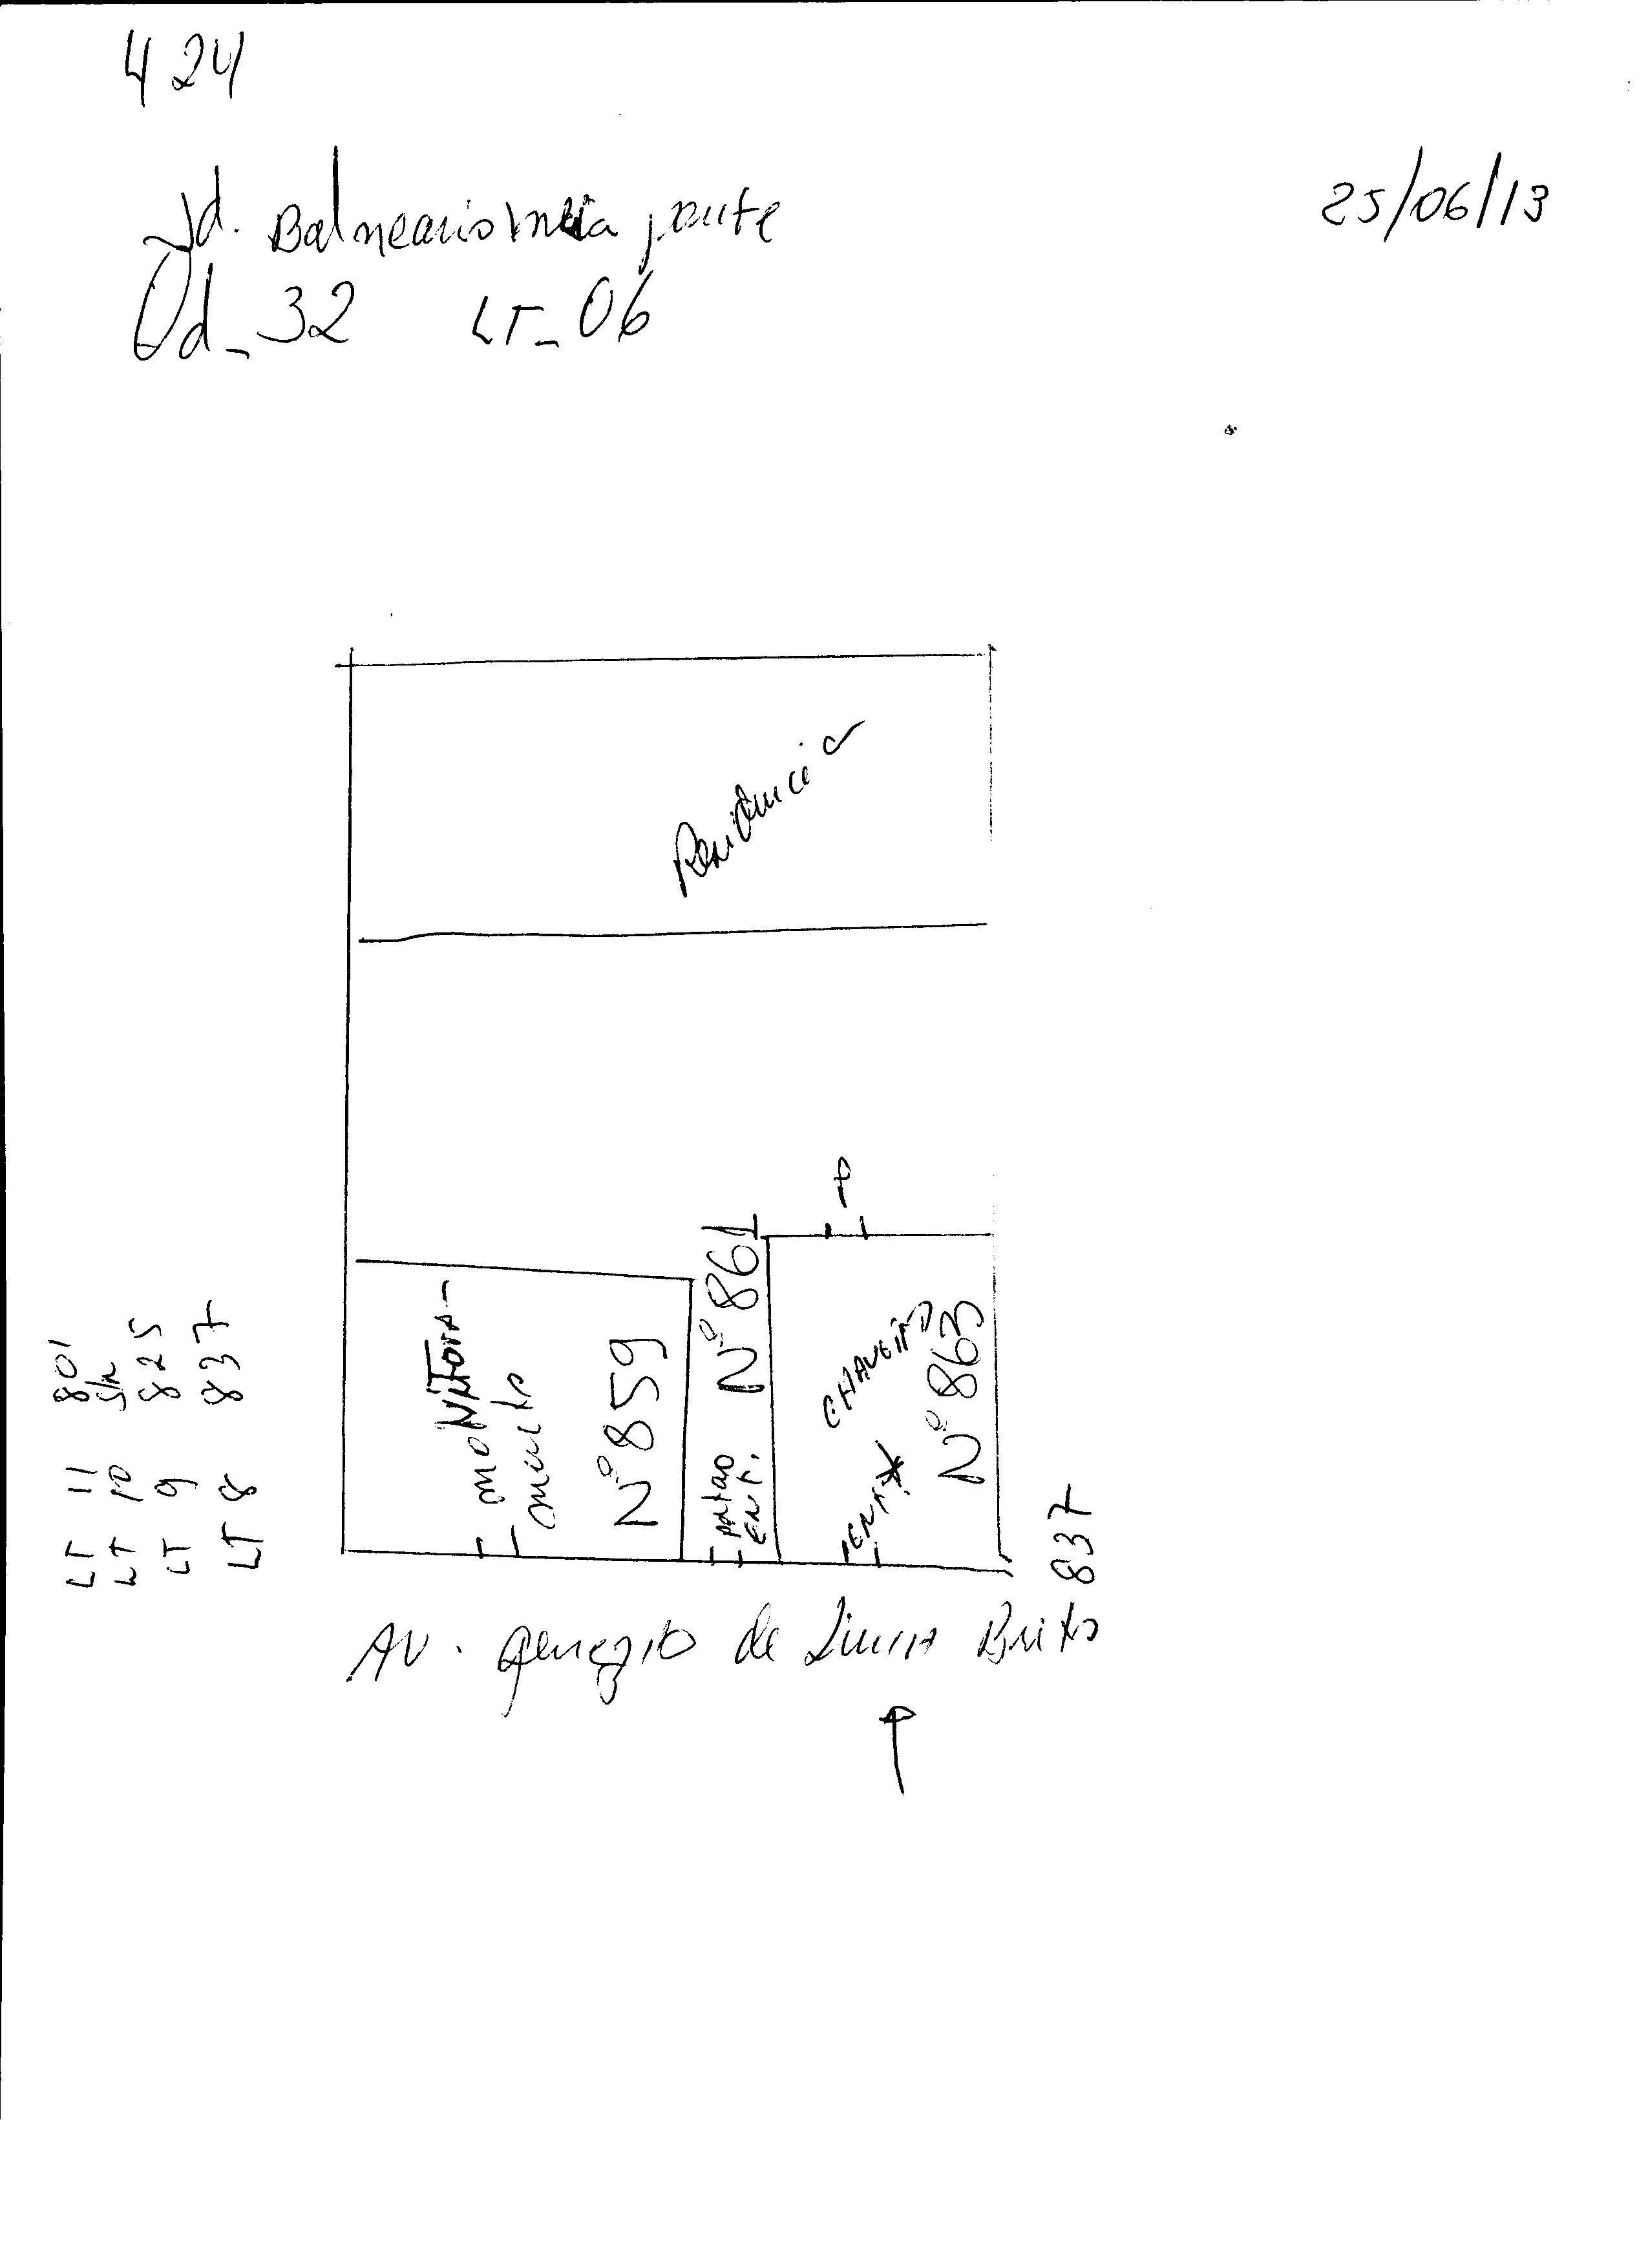 424
25/06/13
Jd. Balneario meia ponte
Qd_32 LT_06
Residencia
MONITORA-
mento
Nº 859
portão
ENT.
Nº 861
CHAVEIRO
ENT
Nº 863
LT 11 801
LT 10 S/N
LT 9 825
LT 8 837
837
AV. Genezio de Lima Brito